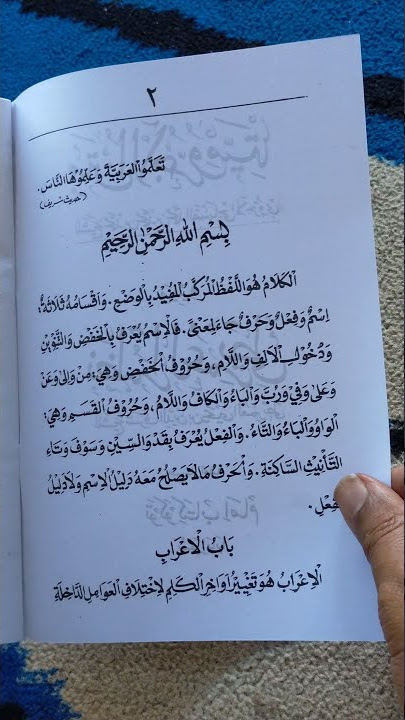 ٢
تَعَلَّمُوا الْعَرَبِيَّةَ وَعَلِّمُوْهَا النَّاسَ.
(حديث شريف)
بِسْمِ اللهِ الرَّحْمٰنِ الرَّحِيْمِ
الْكَلَامُ هُوَ اللَّفْظُ الْمُرَكَّبُ الْمُفِيْدُ بِالْوَضْعِ. وَاَقْسَامُهُ ثَلَاثَةٌ:
اِسْمٌ وَفِعْلٌ وَحَرْفٌ جَاءَ لِمَعْنًى. فَالْاِسْمُ يُعْرَفُ بِالْخَفْضِ وَالتَّنْوِيْنِ
وَدُخُوْلِ الْاَلِفِ وَاللَّامِ، وَحُرُوْفُ الْخَفْضِ وَهِيَ: مِنْ وَاِلَى وَعَنْ
وَعَلَى وَفِيْ وَرُبَّ وَالْبَاءُ وَالْكَافُ وَاللَّامُ، وَحُرُوْفُ الْقَسَمِ وَهِيَ:
الْوَاوُ وَالْبَاءُ وَالتَّاءُ. وَالْفِعْلُ يُعْرَفُ بِقَدْ وَالسِّيْنِ وَسَوْفَ وَتَاءِ
التَّأْنِيْثِ السَّاكِنَةِ. وَالْحَرْفُ مَا لَا يَصْلُحُ مَعَهُ دَلِيْلُ الْاِسْمِ وَلَا دَلِيْلُ
الْفِعْلِ.
بَابُ الْاِعْرَابِ
الْاِعْرَابُ هُوَ تَغْيِيْرُ اَوَاخِرِ الْكَلِمِ لِاخْتِلَافِ الْعَوَامِلِ الدَّاخِلَةِ